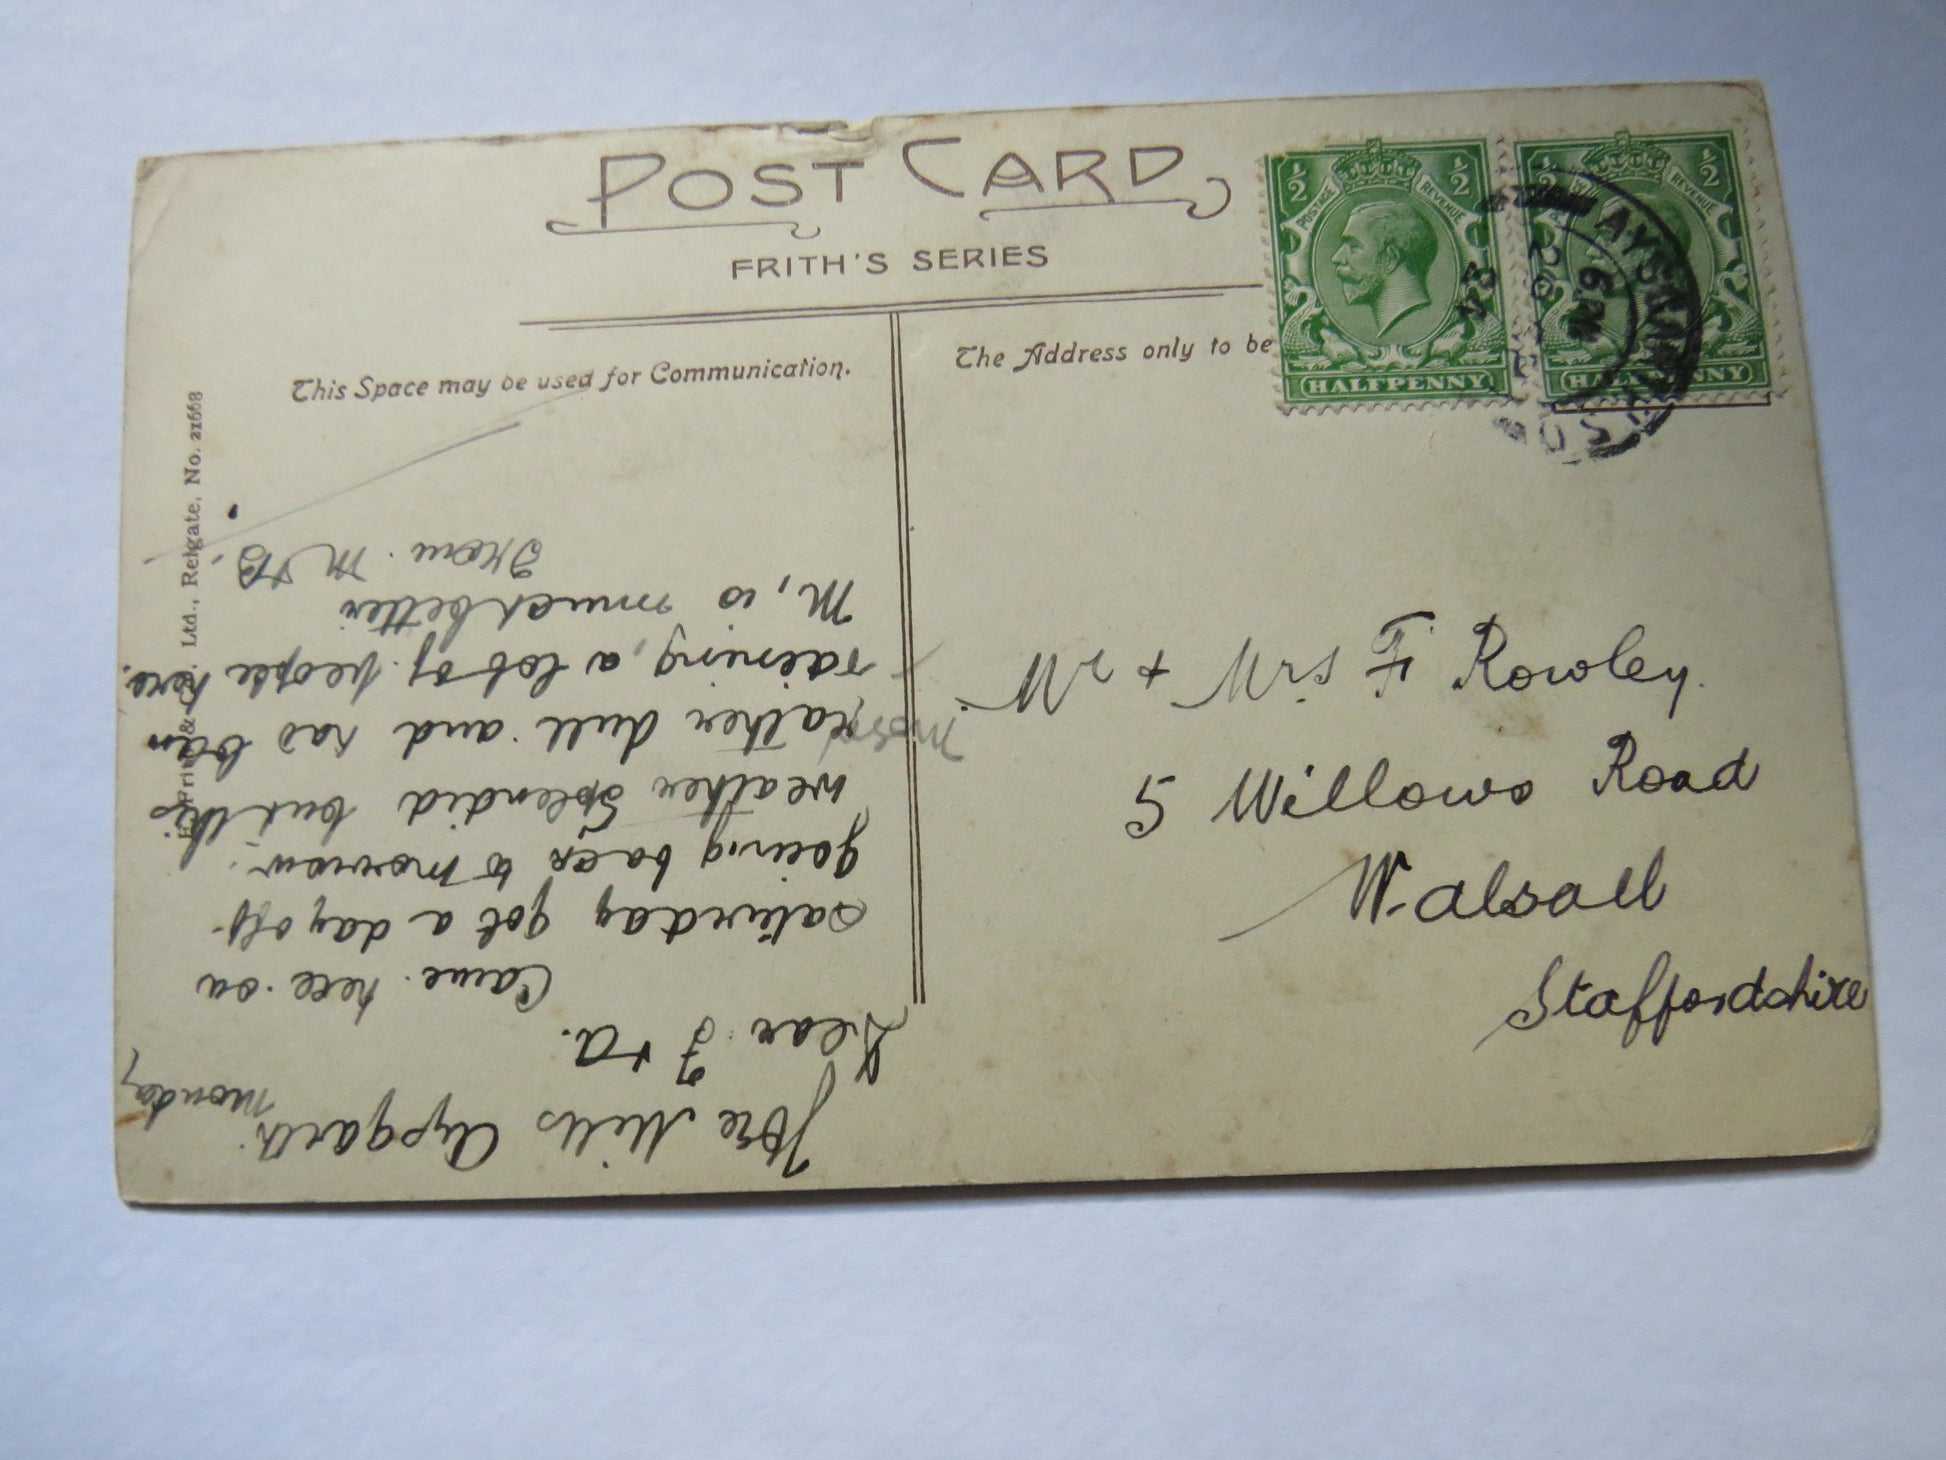 POST CARD
FRITH'S SERIES
This Space may be used for Communication.
The Address only to be
½ ½
POSTAGE REVENUE
HALFPENNY
½ ½
REVENUE
HALFPENNY
AYSGARTH
6 PM
24
Ltd., Reigate. No. 21668
Mr & Mrs F Rowley.
5 Willows Road
Walsall
Staffordshire
Mills Aysgarth.
Monday
Dear F & A.
Came here on
saturday got a day off
going back to morrow.
weather splendid but this
morn rather dull and has been
raining, a lot of people here.
M, is much better
From M & B.